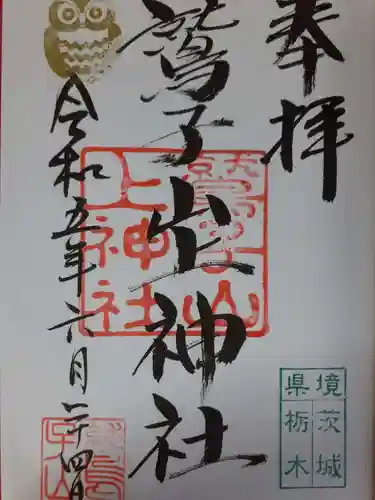 奉拝
鷲子山上神社
令和五年六月二十四日
鷲子山
上神社
県境
茨城
栃木
鷲
子山